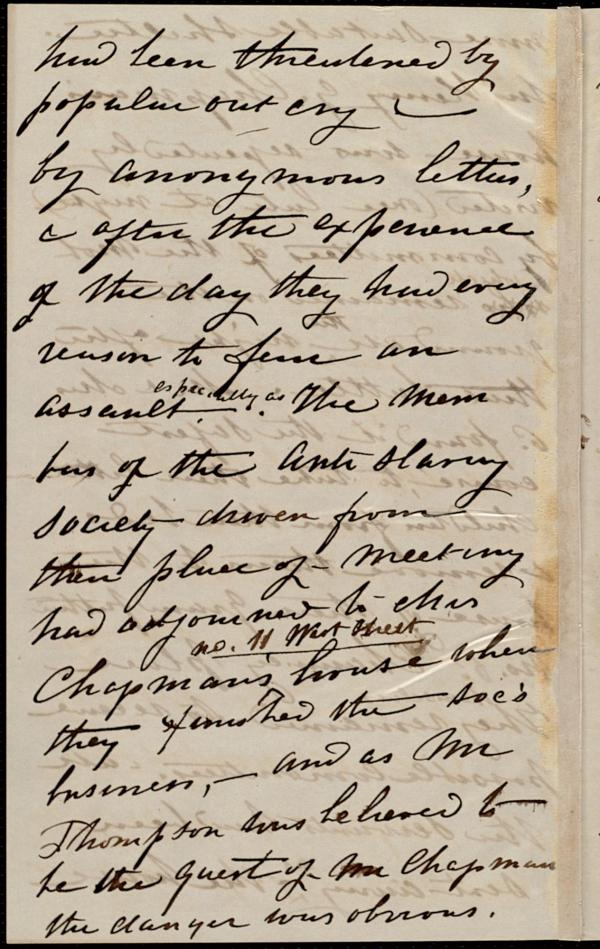 had been threatened by
popular out cry —
by anonymous letters,
& after the experience
of the day they had every
reason to fear an
especially as
assault. The mem
bers of the anti slavery
society driven from
their place of meeting
had adjourned to Mrs
no. 11 West Street
Chapman's house when
they finished the soc's
business, — and as Mr
Thompson was believed to
be the guest of Mr Chapman
the danger was obvious.